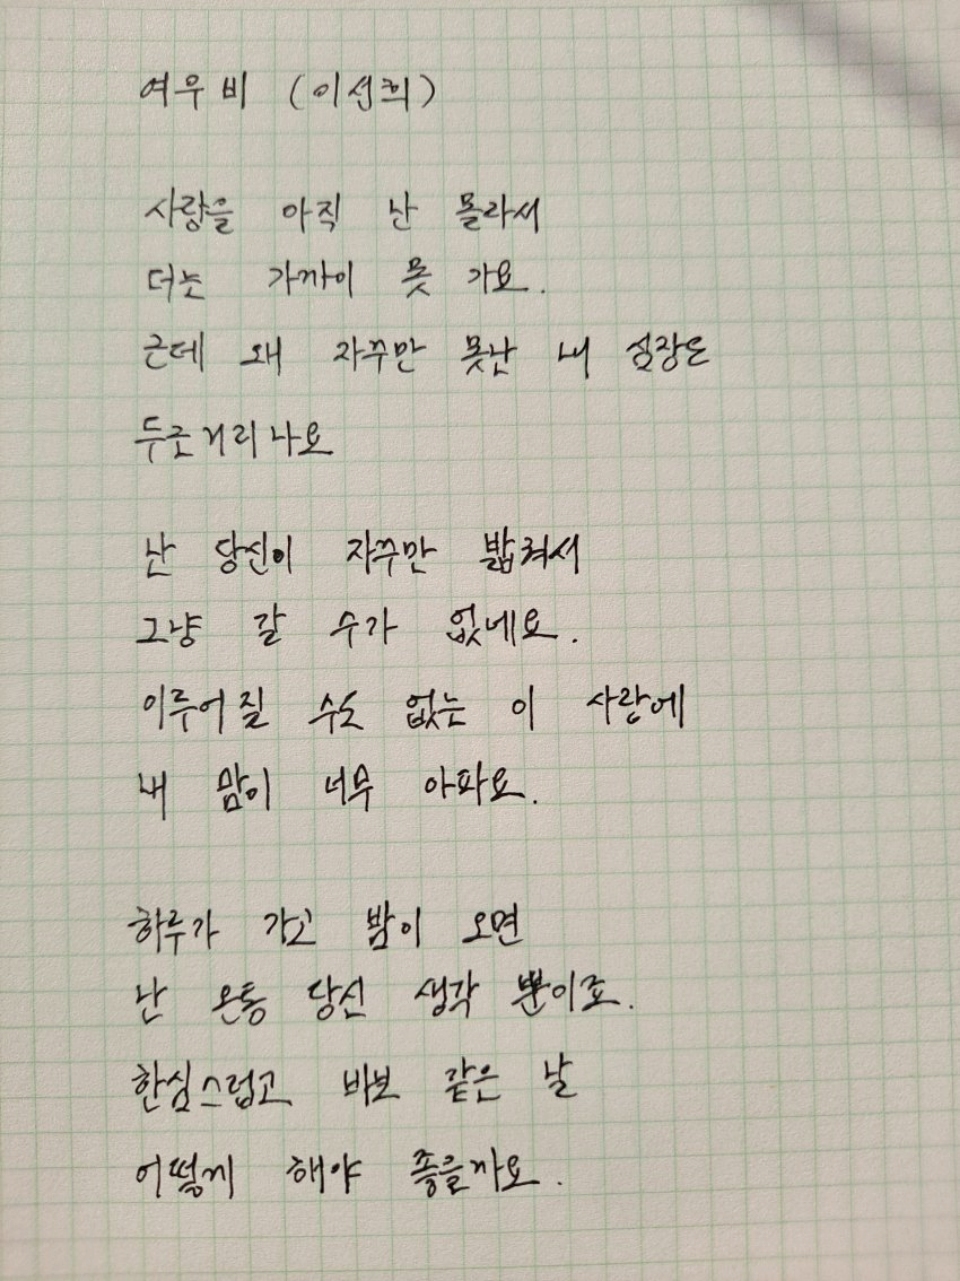 여우비 (이선희)
사랑을 아직 난 몰라서
더는 가까이 못 가요.
근데 왜 자꾸만 못난 내 심장은
두근거리나요
난 당신이 자꾸만 밟혀서
그냥 갈 수가 없네요.
이루어질 수도 없는 이 사랑에
내 맘이 너무 아파요.
하루가 가고 밤이 오면
난 온통 당신 생각 뿐이죠.
한심스럽고 바보 같은 날
어떻게 해야 좋을까요.